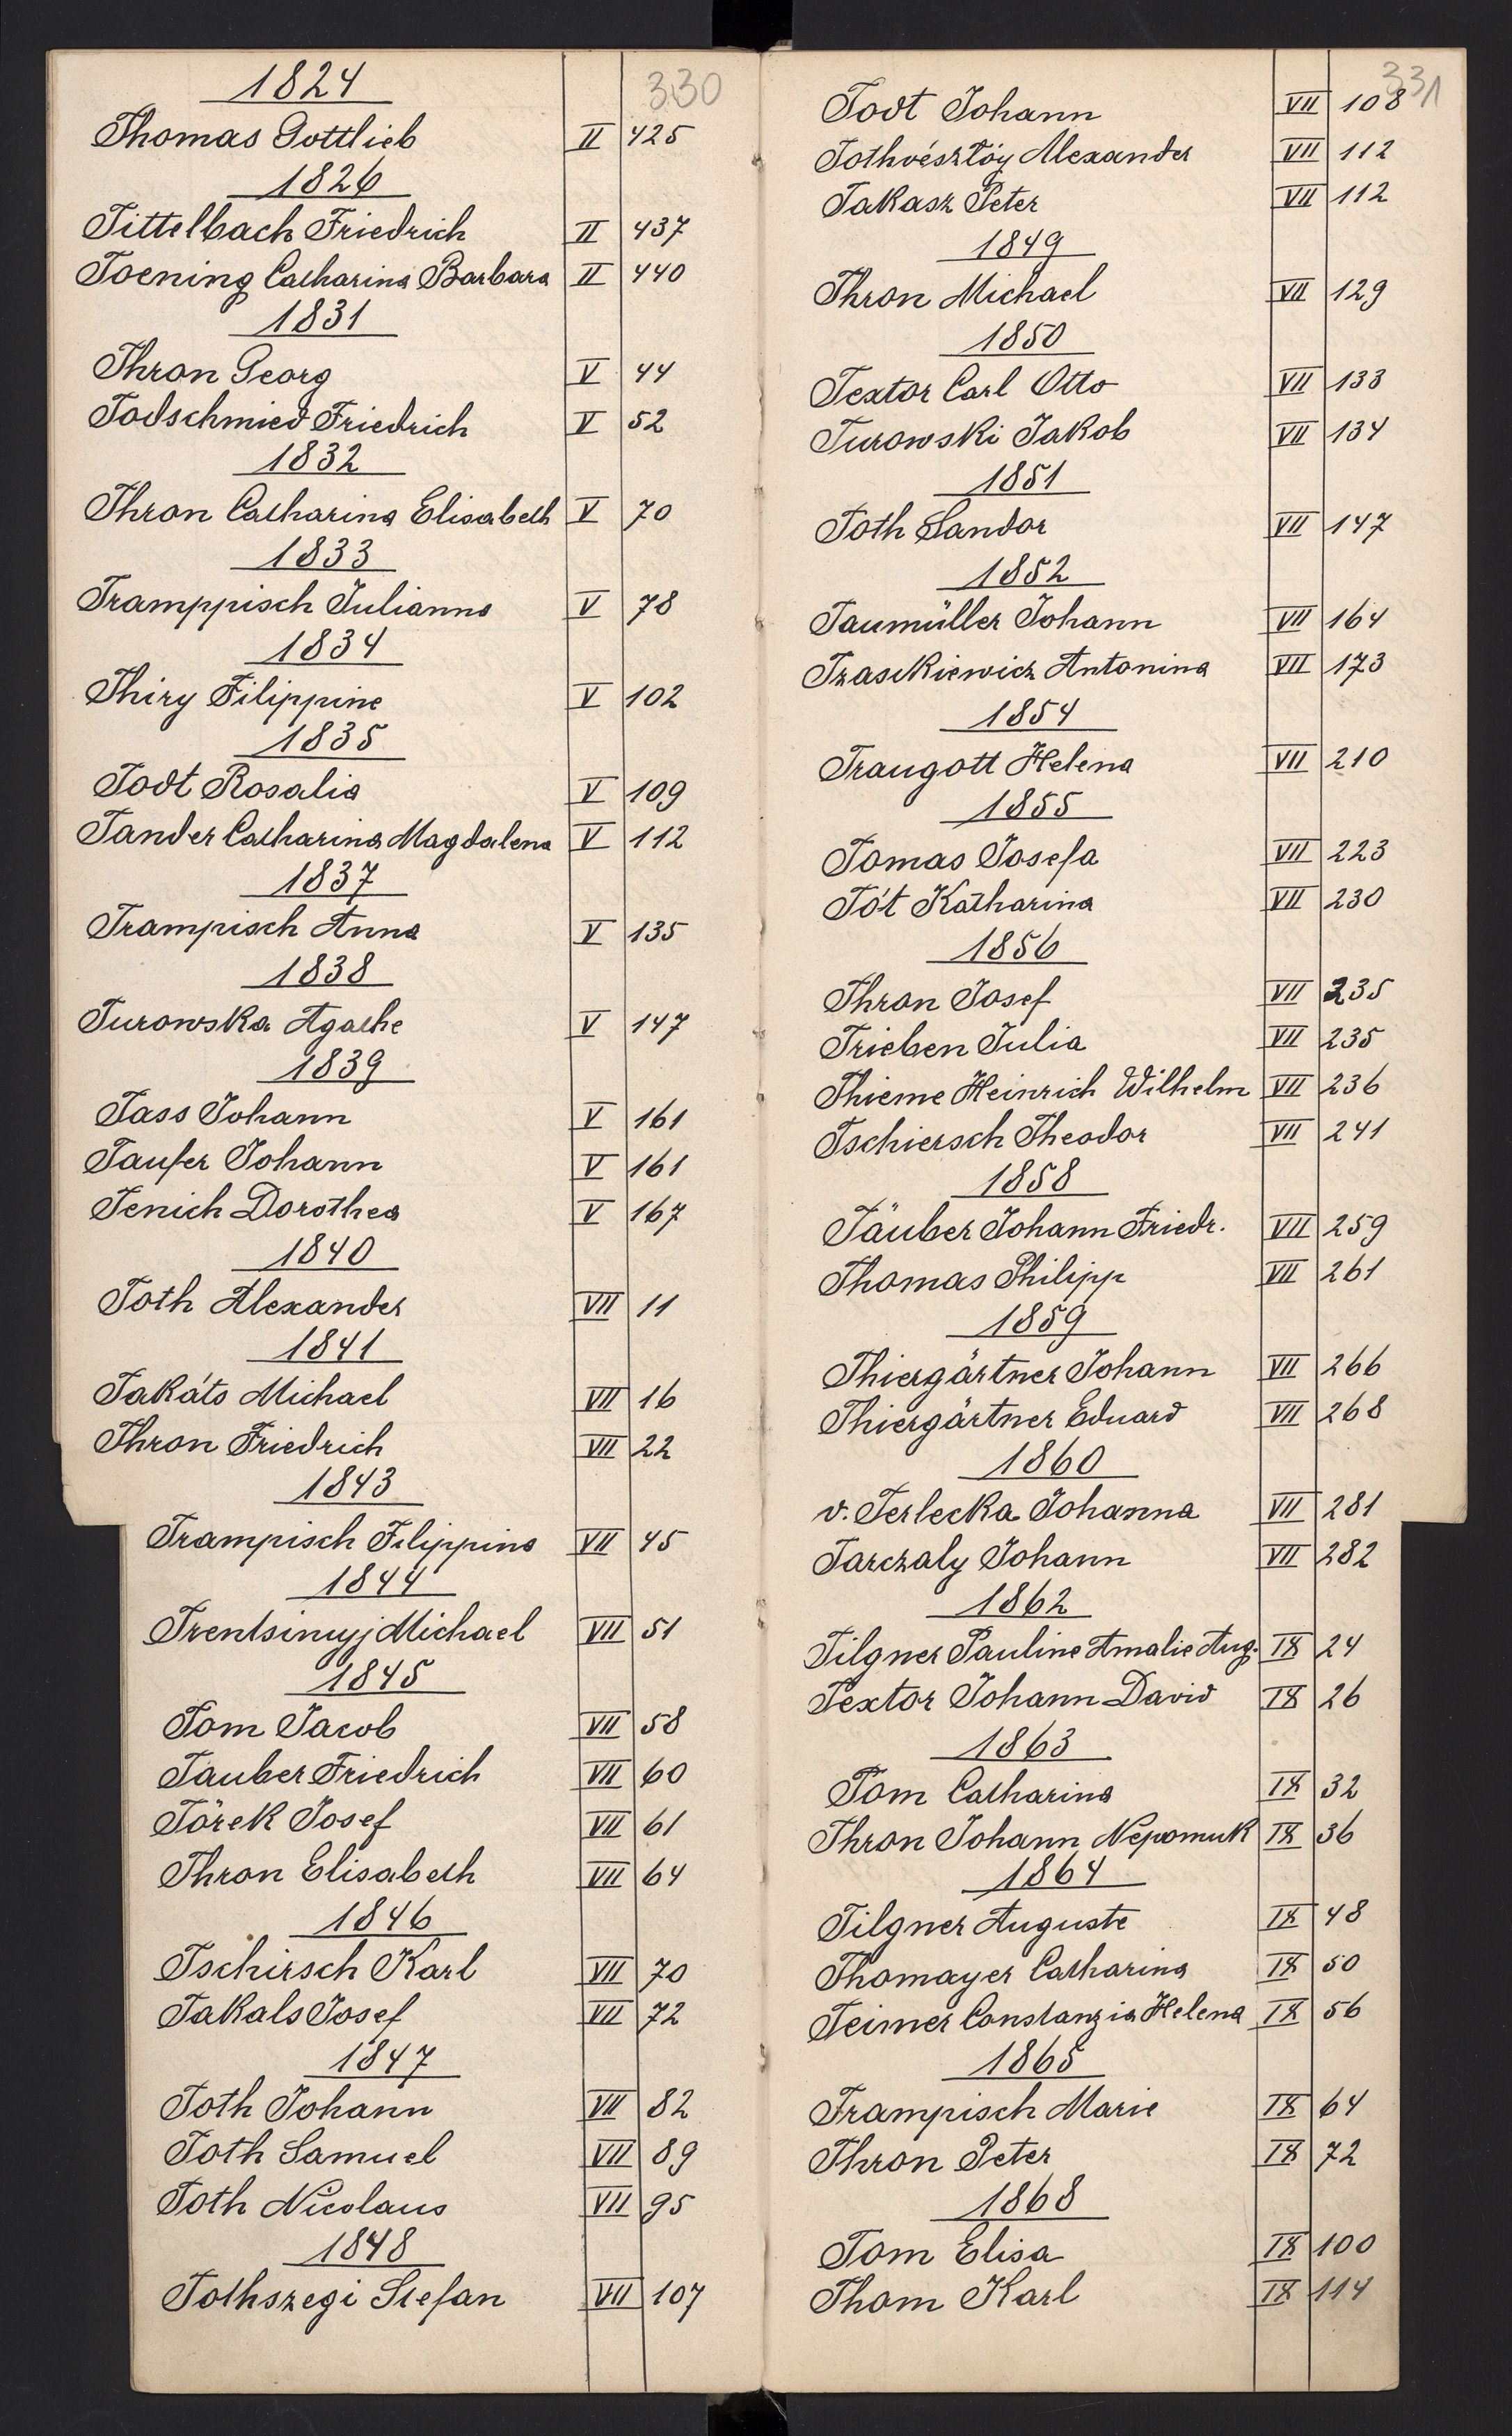 330
1824
Thomas Gottlieb II 425
1826
Tittelbach Friedrich II 437
Toening Catharina Barbara II 440
1831
Thron Georg V 44
Todschmied Friedrich V 52
1832
Thron Catharina Elisabeth V 70
1833
Tramppisch Julianna V 78
1834
Thiry Filippine V 102
1835
Todt Rosalia V 109
Tander Catharina Magdalena V 112
1837
Trampisch Anna V 135
1838
Turowska Agathe V 147
1839
Tass Johann V 161
Taufer Johann V 161
Tenich Dorothea V 167
1840
Toth Alexander VII 11
1841
Takáts Michael VII 16
Thron Friedrich VII 22
1843
Trampisch Filippina VII 45
1844
Trentsinyj Michael VII 51
1845
Tom Jacob VII 58
Tauber Friedrich VII 60
Törek Josef VII 61
Thron Elisabeth VII 64
1846
Tschirsch Karl VII 70
Takals Josef VII 72
1847
Toth Johann VII 82
Toth Samuel VII 89
Toth Nicolaus VII 95
1848
Tothszegi Stefan VII 107
331
Todt Johann VII 108
Tothvésztöy Alexander VII 112
Takasz Peter VII 112
1849
Thron Michael VII 129
1850
Textor Carl Otto VII 133
Turowski Jakob VII 134
1851
Toth Sandor VII 147
1852
Taumüller Johann VII 164
Trasckiewicz Antonina VII 173
1854
Traugott Helena VII 210
1855
Tomas Josefa VII 223
Tót Katharina VII 230
1856
Thron Josef VII 235
Trieben Julia VII 235
Thieme Heinrich Wilhelm VII 236
Tschiersch Theodor VII 241
1858
Täuber Johann Friedr. VII 259
Thomas Philipp VII 261
1859
Thiergärtner Johann VII 266
Thiergärtner Eduard VII 268
1860
v. Terlecka Johanna VII 281
Tarczaly Johann VII 282
1862
Tilgner Pauline Amalie Aug. IX 24
Textor Johann David IX 26
1863
Tom Catharina IX 32
Thron Johann Nepomuk IX 36
1864
Tilgner Auguste IX 48
Thomayer Catharina IX 50
Teimer Constanzia Helena IX 56
1865
Trampisch Marie IX 64
Thron Peter IX 72
1868
Tom Elisa IX 100
Thom Karl IX 114